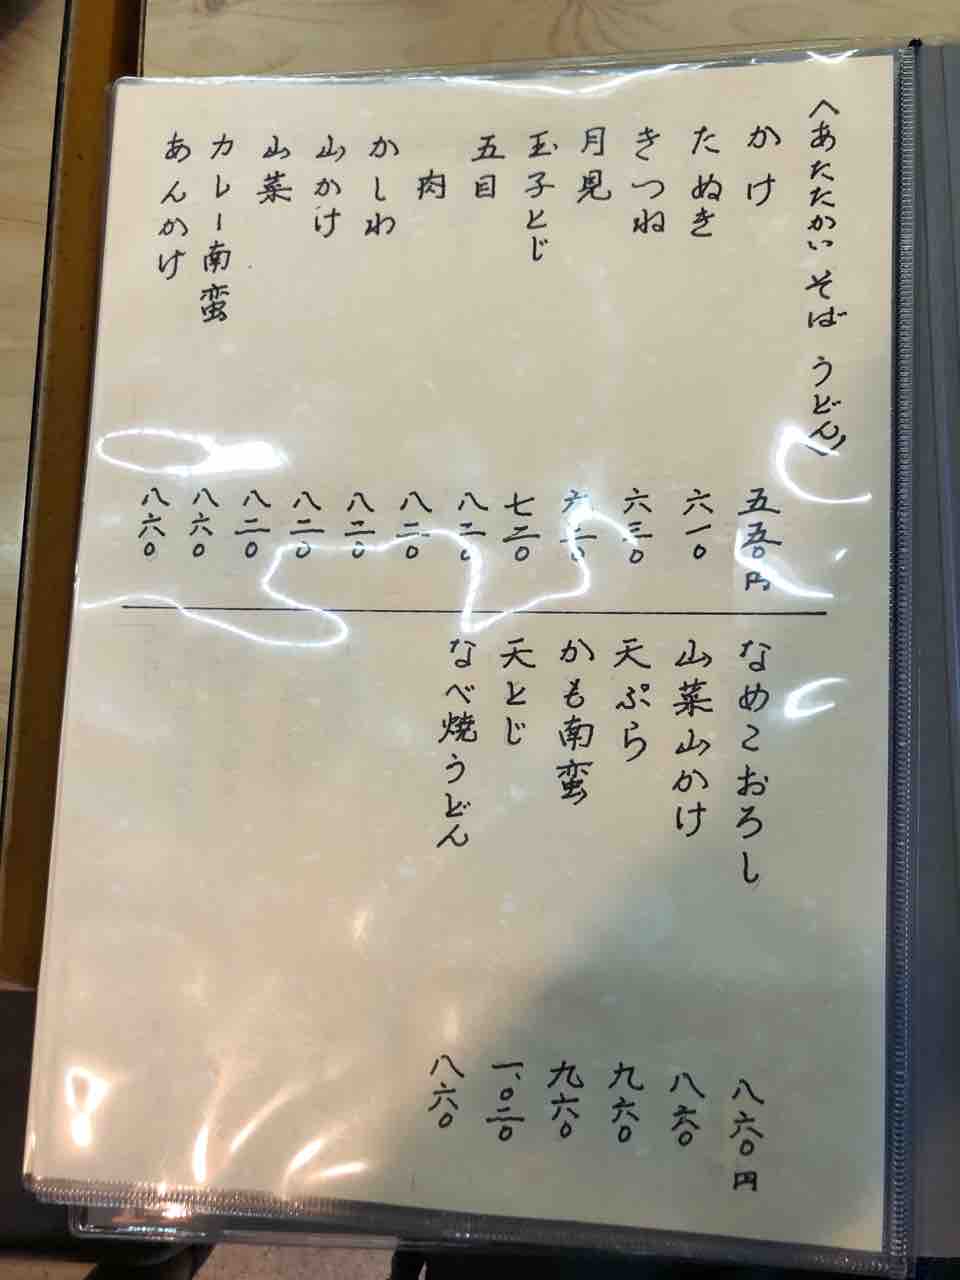 〈あたたかい そば うどん〉
かけ 五五〇円
たぬき 六一〇
きつね 六三〇
月見
玉子とじ 七二〇
五目 八二〇
肉 八二〇
かしわ 八二〇
山かけ 八二〇
山菜 八二〇
カレー南蛮 八六〇
あんかけ 八六〇
なめこおろし 八六〇円
山菜山かけ 八六〇
天ぷら 九六〇
かも南蛮 九六〇
天とじ 一、〇二〇
なべ焼うどん 八六〇